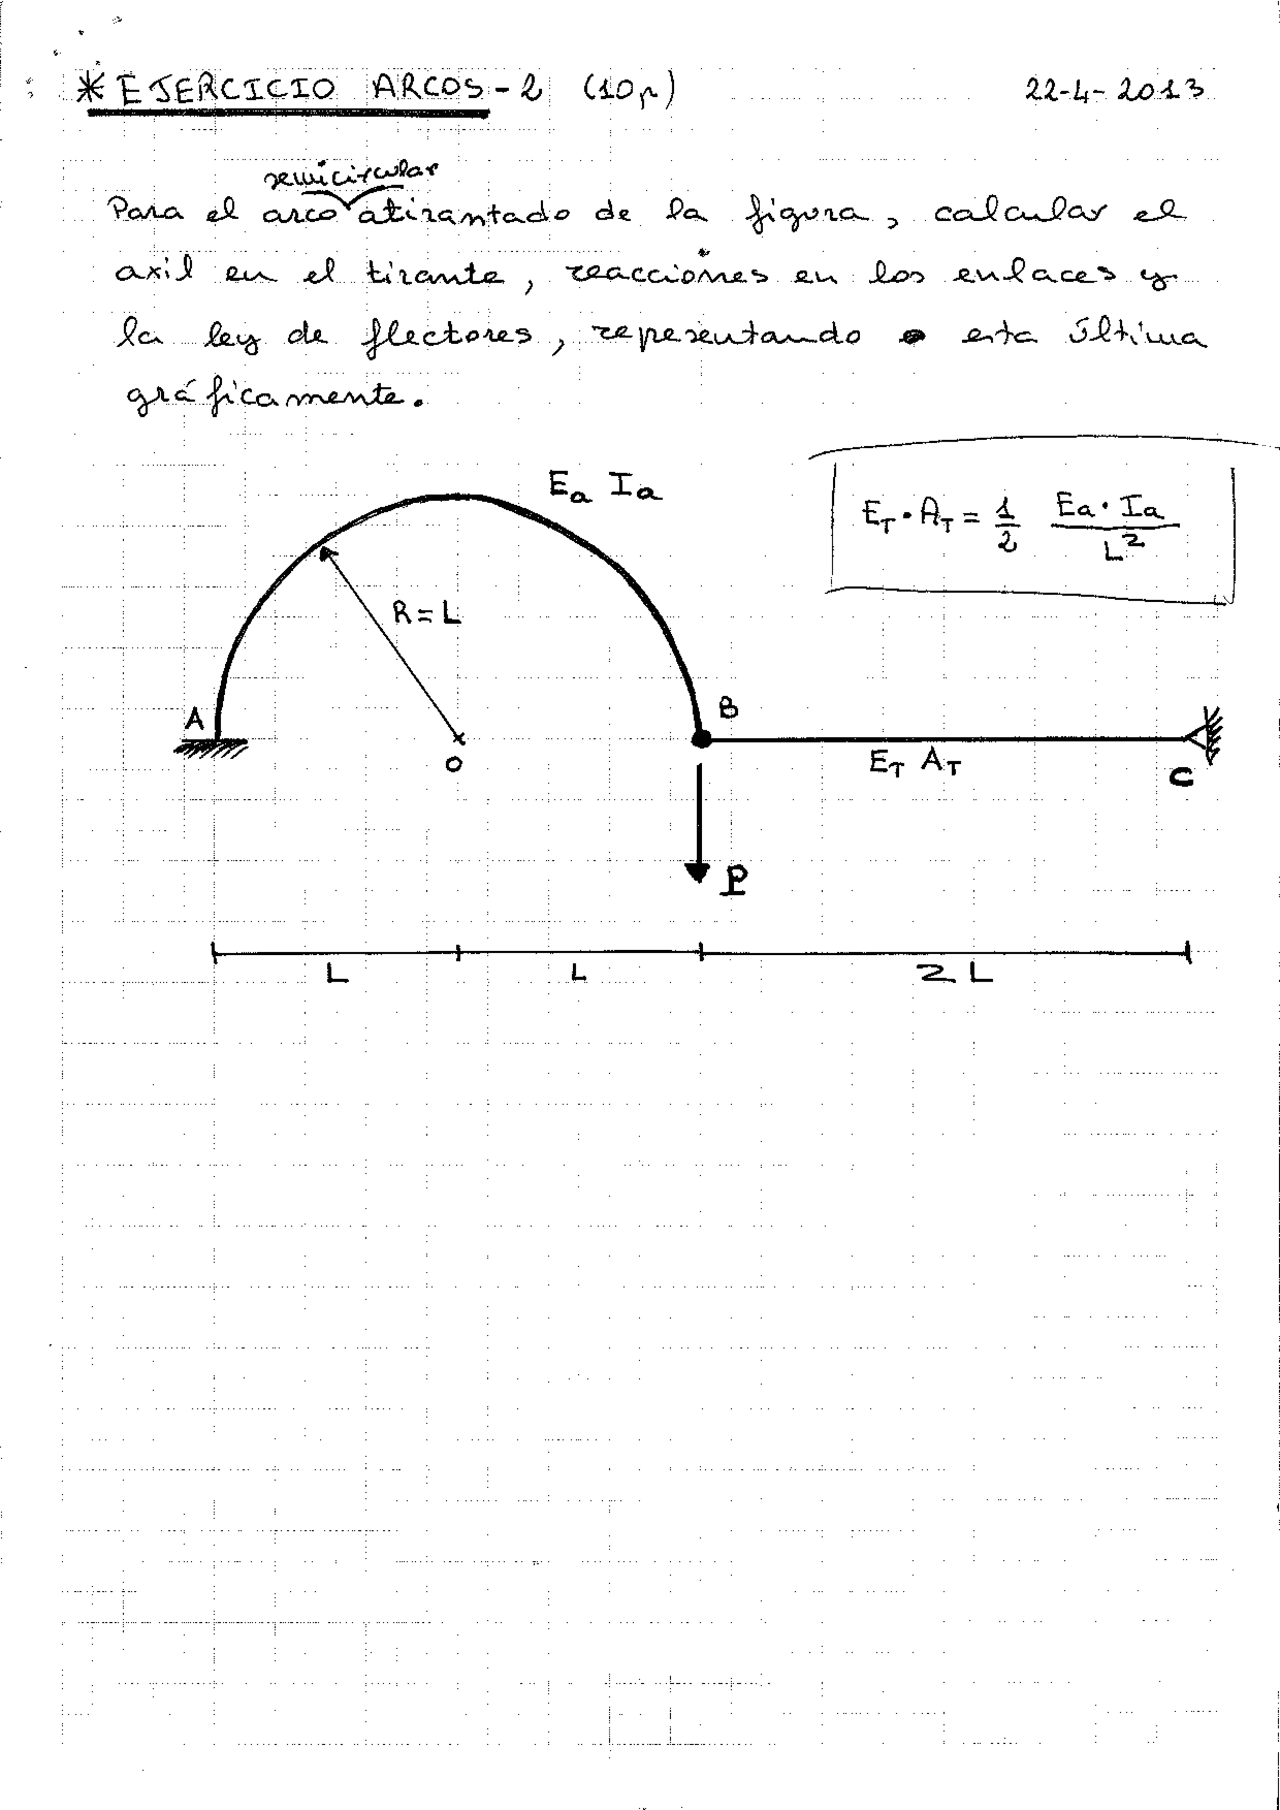 * EJERCICIO ARCOS-2 (10p) 22-4-2013
semicircular
Para el arco atirantado de la figura, calcular el
axil en el tirante, reacciones en los enlaces y
la ley de flectores, representando esta última
gráficamente.
Ea Ia
E_T · A_T = 1/2 Ea · Ia / L²
R = L
A
B
O
E_T A_T
C
P
L L 2L